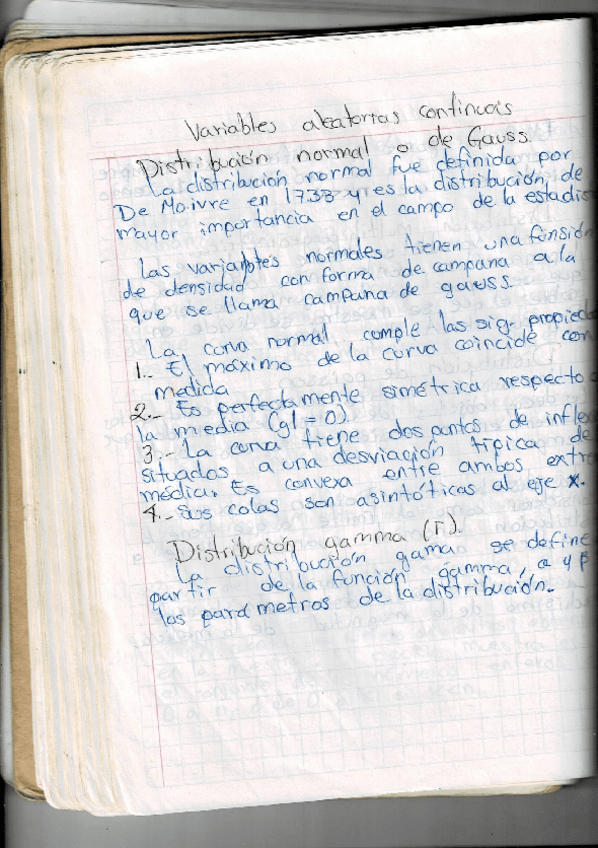 Variables aleatorias continuas
Distribución normal o de Gauss
La distribución normal fue definida por
De Moivre en 1733 y es la distribución, de
mayor importancia en el campo de la estadis
Las variables normales tienen una función
de densidad con forma de campana a la
que se llama campana de gauss.
La curva normal cumple las sig. propieda
1.- El máximo de la curva coincide con
medida
2.- Es perfectamente simétrica respecto a
la media (g1 = 0).
3.- La curva tiene dos puntos de inflex
situados a una desviación tipica de
média. Es convexa entre ambos extre
4.- Sus colas son asintóticas al eje x.
Distribución gamma (Γ).
La distribución gama se define
partir de la función gamma, α y β
los parámetros de la distribución.